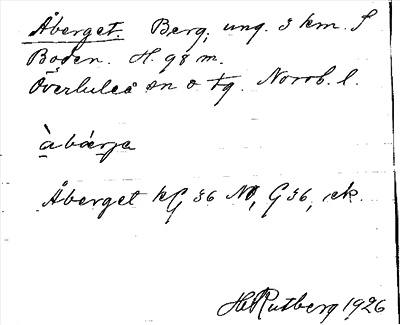 Åberget. Berg, ung. 3 km. S
Boden. H. 98 m.
Överluleå sn o tg. Norrb. l.
àbárja
Åberget kG 36 NO, G 36, ek.
H Rutberg 1926